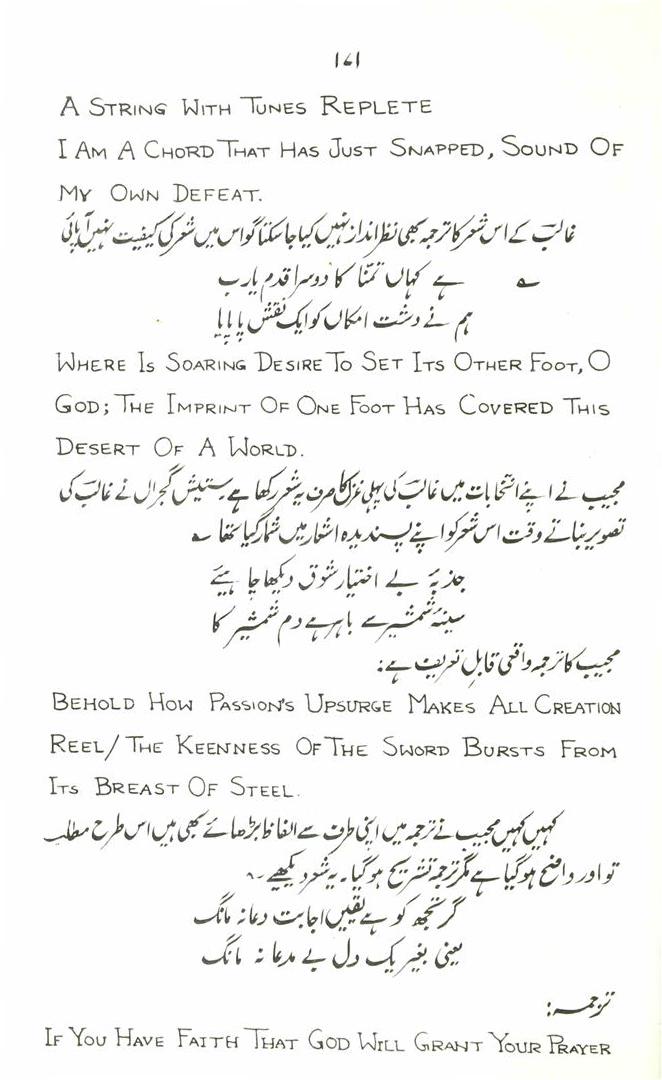 ۱۷۱
A STRING WITH TUNES REPLETE
I AM A CHORD THAT HAS JUST SNAPPED, SOUND OF
MY OWN DEFEAT.
غالبؔ کے اس شعر کا ترجمہ بھی نظر انداز نہیں کیا جا سکتا گو اس میں شعر کی کیفیت نہیں آ پائی
؎ ہے کہاں تمنّا کا دوسرا قدم یارب
ہم نے دشت امکاں کو ایک نقش پا پایا
WHERE IS SOARING DESIRE TO SET ITS OTHER FOOT, O
GOD; THE IMPRINT OF ONE FOOT HAS COVERED THIS
DESERT OF A WORLD.
مجیب نے اپنے انتخابات میں غالبؔ کی پہلی غزل کا صرف یہ شعر رکھا ہے ستیش گجرال نے غالبؔ کی
تصویر بناتے وقت اس شعر کو اپنے پسندیدہ اشعار میں شمار کیا تھا ؎
جذبۂ بے اختیار شوق دیکھا چاہیئے
سینۂ شمشیر سے باہر ہے دم شمشیر کا
مجیب کا ترجمہ واقعی قابلِ تعریف ہے:
BEHOLD HOW PASSION'S UPSURGE MAKES ALL CREATION
REEL/ THE KEENNESS OF THE SWORD BURSTS FROM
ITS BREAST OF STEEL.
کہیں کہیں مجیب نے ترجمہ میں اپنی طرف سے الفاظ بڑھائے بھی ہیں اس طرح مطلب
تو اور واضح ہو گیا ہے مگر ترجمہ تشریح ہو گیا۔ یہ شعر دیکھیے ؎
گر تجھ کو ہے یقیں اجابت دعا نہ مانگ
یعنی بغیر یک دل بے مدعا نہ مانگ
ترجمہ:
IF YOU HAVE FAITH THAT GOD WILL GRANT YOUR PRAYER